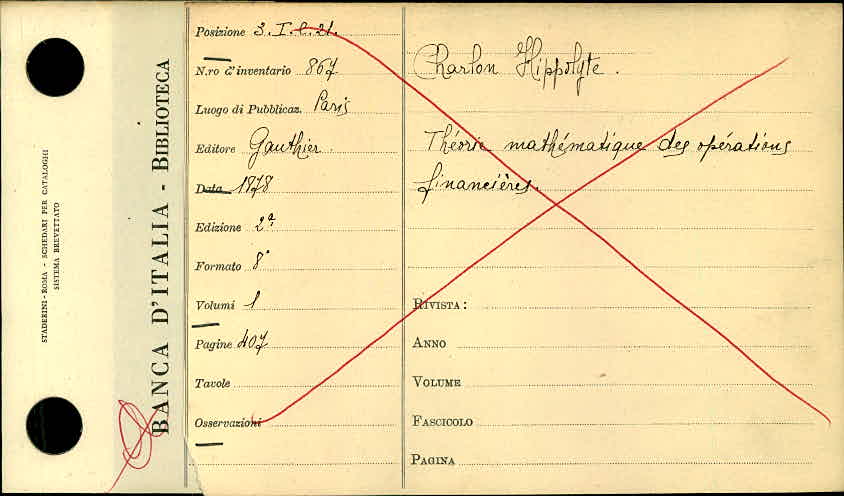 STADERINI-ROMA - SCHEDARI PER CATALOGHI
SISTEMA BREVETTATO
BANCA D'ITALIA - BIBLIOTECA
Posizione 3. I. C. 21.
N.ro d'inventario 867
Luogo di Pubblicaz. Paris
Editore Gauthier.
Data 1878
Edizione 2ª
Formato 8°
Volumi 1
Pagine 407
Tavole
Osservazioni
Charlon Hippolyte.
Théorie mathématique des opérations
financières.
RIVISTA:
ANNO
VOLUME
FASCICOLO
PAGINA